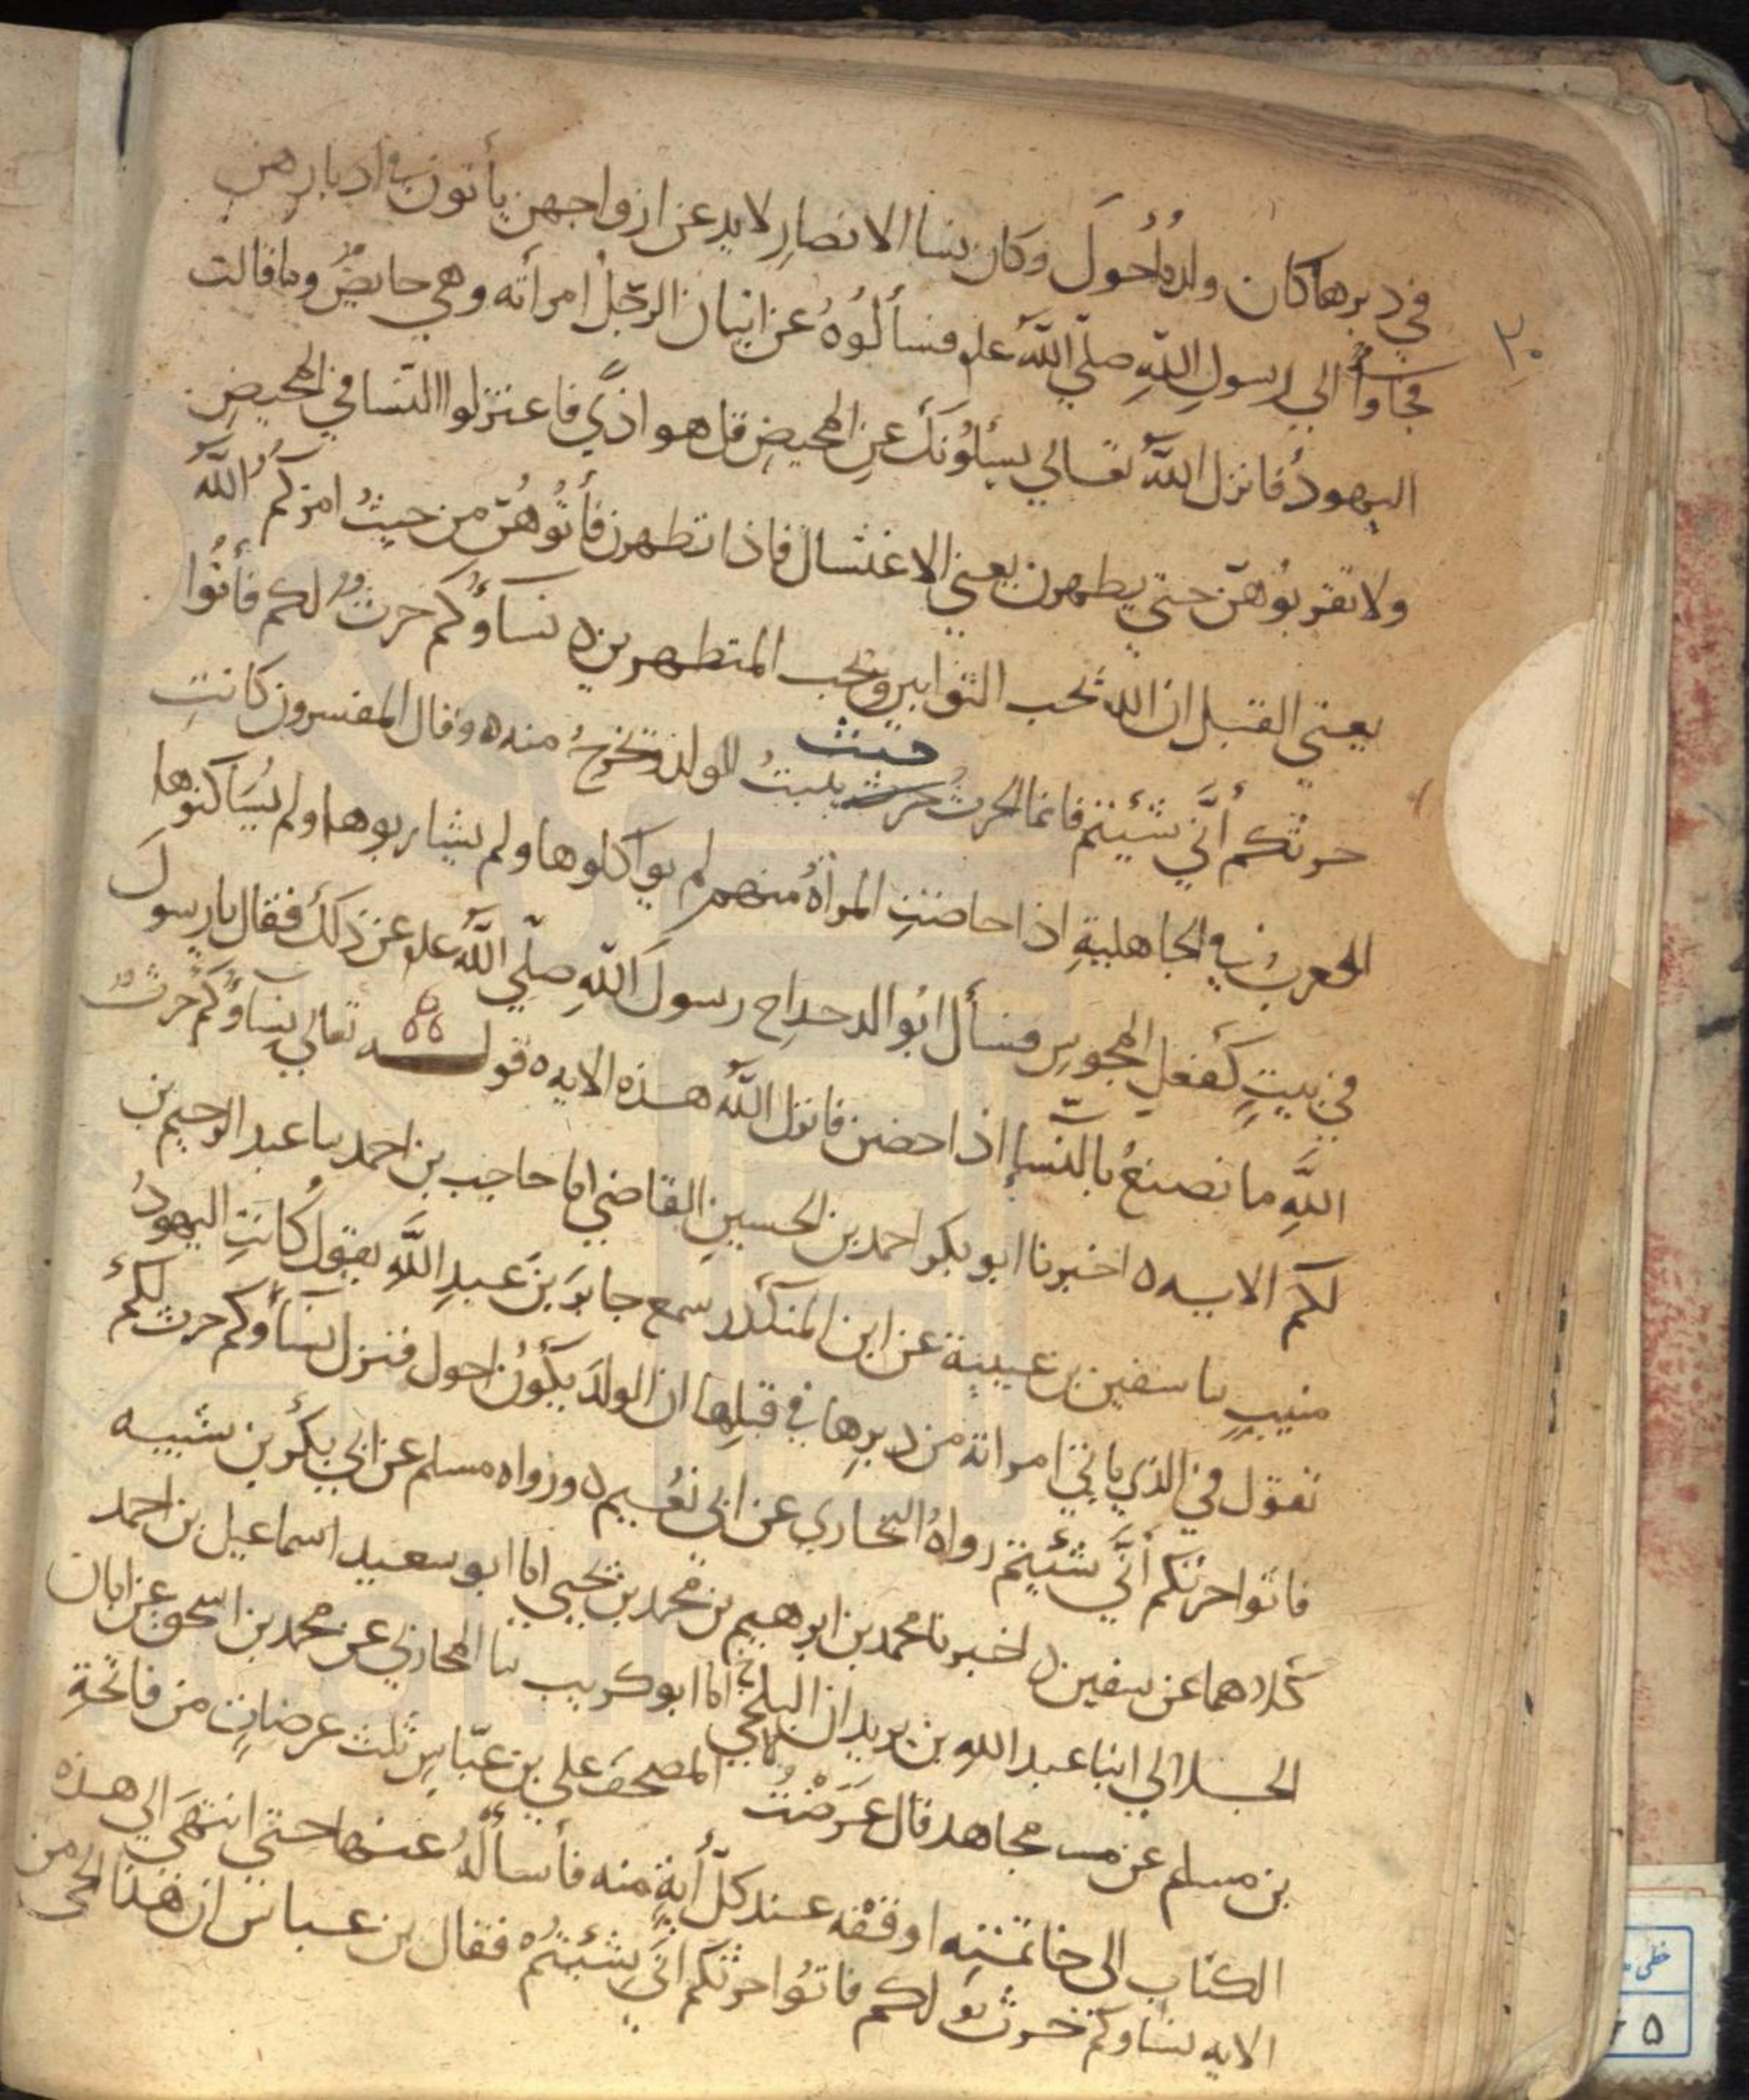 في دبرها كان ولده أحول وكان نسا الانصار لا يدعن ازواجهن يأتونهن في ادبارهن
فجاوا الي رسول الله صلي الله عله فسألوه عن اتيان الرجل امرأته وهي حايض وما قالت
اليهود فانزل الله تعالي يسئلونك عن المحيض قل هو اذي فاعتزلوا النسا في المحيض
ولا تقربوهن حتي يطهرن يعني الاغتسال فاذا تطهرن فأتوهن من حيث امركم الله
يعني القبل ان الله يحب التوابين ويحب المتطهرين ه نساؤكم حرث لكم فأتوا
حرثكم أنى شيتم فانما الحرث حيث ينبت الولد ويخرج منه ه وقال المفسرون كانت
العرب في الجاهلية اذا حاضت المرأة منهم لم يواكلوها ولم يشاربوها ولم يساكنوها
في بيت كفعل المجوس فسأل ابو الدحداح رسول الله صلي الله عله عن ذلك فقال يا رسول
الله ما نصنع بالنسا اذا حضن فانزل الله هذه الايه ه قوله تعالي نساؤكم حرث
لكم الايه ه اخبرنا ابو بكر احمد بن الحسين القاضي انا حاجب بن احمد نا عبد الرحيم بن
منيب نا سفين بن عيينة عن ابن المنكدر سمع جابر بن عبد الله يقول كانت اليهود
تقول في الذي ياتي امراته من دبرها في قبلها ان الولد يكون احول فنزل نساؤكم حرث لكم
فاتوا حرثكم أنى شئتم رواه البخاري عن ابي نعيم ه ورواه مسلم عن ابي بكر بن شيبه
كلاهما عن سفين ه اخبرنا محمد بن ابرهيم بن محمد بن يحيي انا ابو سعيد اسماعيل بن احمد
الخلالي انبا عبد الله بن يزيدان البجلي انا ابو كريب نا المحاربي عن محمد بن اسحق عن ابان
بن مسلم عن مجاهد قال عرضت المصحف علي بن عباس ثلث عرضات من فاتحة
الكتاب الى خاتمته اوقفه عند كل أية منه فأسأله عنها حتي انتهى الي هذه
الايه نساوكم حرث لكم فاتوا حرثكم اني شئتم ه فقال بن عباس ان هذا الحي من
٣٠